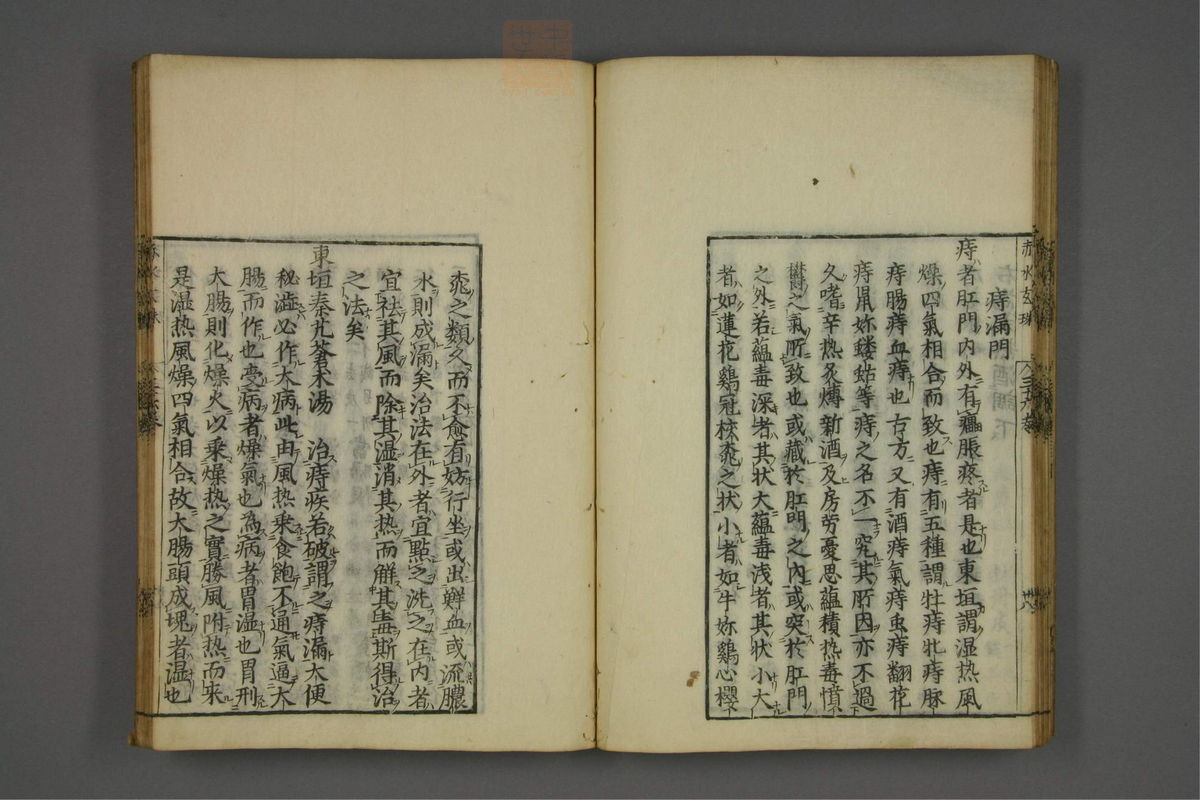 痔漏門
痔者肛門内外有㿈脹疼者是也東垣謂湿热風
燥四氣相合而致也痔有五種謂牡痔牝痔脉
痔腸痔血痔也古方又有酒痔氣痔虫痔翻花
痔鼠妳螻姑等痔之名不一究其所因亦不過
久嗜辛热炙煿新酒及房労憂思蘊積热毒憤
欝之氣所致也或藏於肛門之内或突於肛門
之外若蘊毒深者其状大蘊毒浅者其状小大
者如蓮花鷄冠核桃之状小者如牛妳鷄心櫻
桃之類久而不愈有妨行坐或出鮮血或流膿
水則成漏矣治法在外者宜點之洗之在内者
宜祛其風而除其湿消其热而解其毒斯得治
之法矣
東垣秦艽蒼术湯 治痔疾若破謂之痔漏大便
秘澁必作大病此由風热乘食飽不通氣逼大
腸而作也受病者燥氣也為病者胃湿也胃刑
大腸則化燥火以乘燥热之實勝風附热而来
是湿热風燥四氣相合故大腸頭成塊者湿也
赤水玄珠